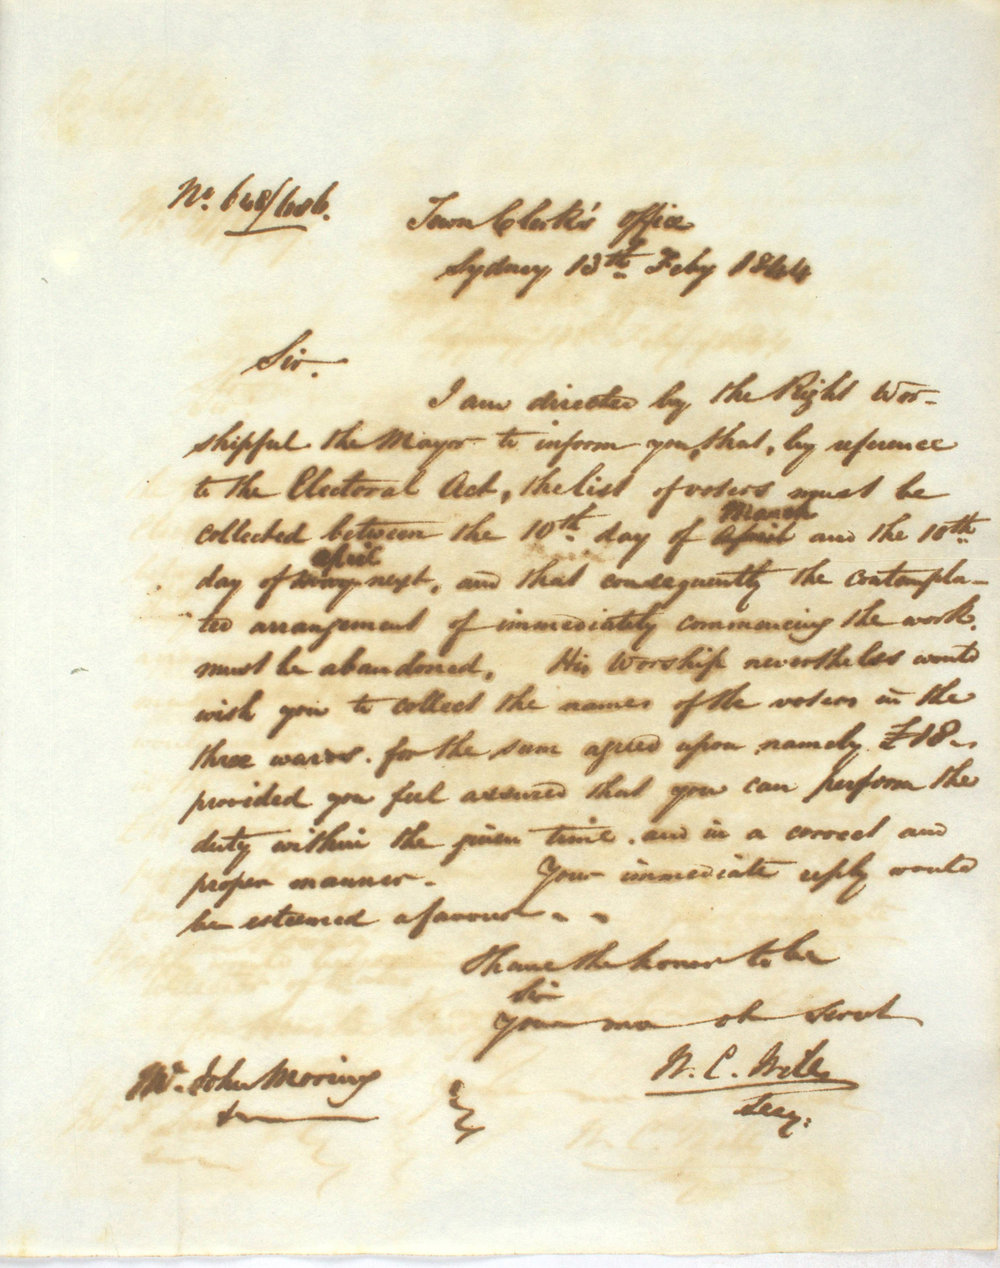 No. 648/686.
Town Clerk's Office
Sydney 13th Feby 1844
Sir.
I am directed by the Right Wor-
shipful the Mayor to inform you, that, by reference
to the Electoral Act, the list of voters must be
March
collected between the 10th day of April and the 10th
April
day of May next, and that consequently the contempla-
ted arrangement of immediately commencing the work
must be abandoned. His Worship nevertheless would
wish you to collect the names of the voters in the
three wards. for the sum agreed upon namely £18-
provided you feel assured that you can perform the
duty within the given time. and in a correct and
proper manner. Your immediate reply would
be esteemed a favour - -
I have the honor to be
Sir
Your mo ob Servt
W. C. Wills
Secy:
Mr. John Moring